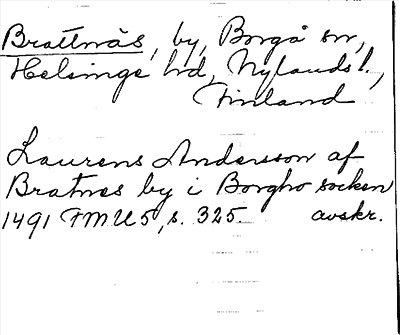 Brattnäs, by, Borgå sn,
Helsinge hd, Nylands l.,
Finland
Laurens Andersson af
Bratnes by i Borgho socken
1491 FMU 5, s. 325. avskr.